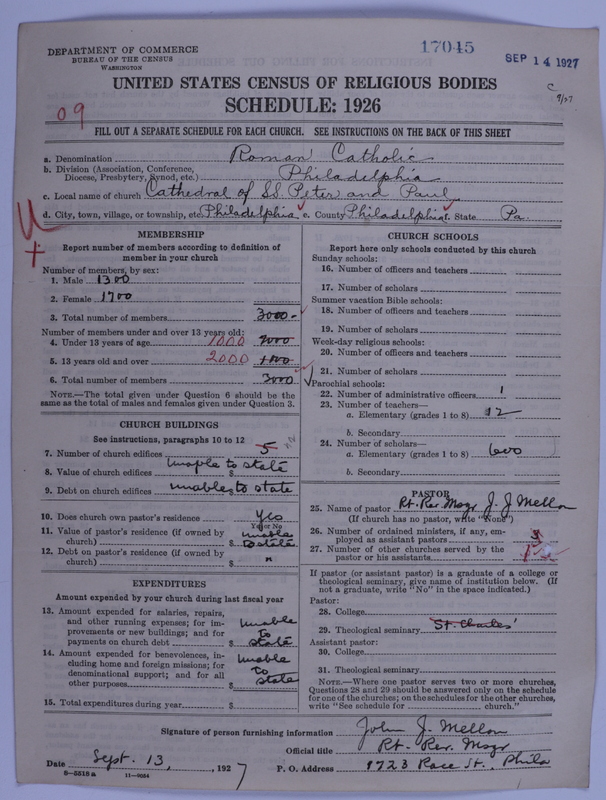 DEPARTMENT OF COMMERCE
BUREAU OF THE CENSUS
WASHINGTON
17045
SEP 14 1927
C
9/27
UNITED STATES CENSUS OF RELIGIOUS BODIES
SCHEDULE: 1926
09
FILL OUT A SEPARATE SCHEDULE FOR EACH CHURCH. SEE INSTRUCTIONS ON THE BACK OF THIS SHEET
a. Denomination Roman Catholic
b. Division (Association, Conference, Diocese, Presbytery, Synod, etc.) Philadelphia
c. Local name of church Cathedral of SS. Peter and Paul
d. City, town, village, or township, etc. Philadelphia e. County Philadelphia f. State Pa.
MEMBERSHIP
Report number of members according to definition of
member in your church
Number of members, by sex:
1. Male 1300
2. Female 1700
3. Total number of members 3000
Number of members under and over 13 years old:
4. Under 13 years of age 1000 2000
5. 13 years old and over 2000 1000
6. Total number of members 3000
NOTE.—The total given under Question 6 should be
the same as the total of males and females given under Question 3.
CHURCH BUILDINGS
See instructions, paragraphs 10 to 12
7. Number of church edifices 5
8. Value of church edifices $ unable to state
9. Debt on church edifices $ unable to state
10. Does church own pastor's residence? Yes
Yes or No
11. Value of pastor's residence (if owned by
church) $ unable to state
12. Debt on pastor's residence (if owned by
church) $ "
EXPENDITURES
Amount expended by your church during last fiscal year
13. Amount expended for salaries, repairs,
and other running expenses; for im-
provements or new buildings; and for
payments on church debt $ unable to state
14. Amount expended for benevolences, in-
cluding home and foreign missions; for
denominational support; and for all
other purposes $ unable to state
15. Total expenditures during year $
CHURCH SCHOOLS
Report here only schools conducted by this church
Sunday schools:
16. Number of officers and teachers
17. Number of scholars
Summer vacation Bible schools:
18. Number of officers and teachers
19. Number of scholars
Week-day religious schools:
20. Number of officers and teachers
21. Number of scholars
Parochial schools:
22. Number of administrative officers 1
23. Number of teachers—
a. Elementary (grades 1 to 8) 12
b. Secondary
24. Number of scholars—
a. Elementary (grades 1 to 8) 600
b. Secondary
PASTOR
25. Name of pastor Rt. Rev. Msgr J. J. Mellon
(If church has no pastor, write "None")
26. Number of ordained ministers, if any, em-
ployed as assistant pastors 3
27. Number of other churches served by the
pastor or his assistants
If pastor (or assistant pastor) is a graduate of a college or
theological seminary, give name of institution below. (If
not a graduate, write "No" in the space indicated.)
Pastor:
28. College
29. Theological seminary St. Charles'
Assistant pastor:
30. College
31. Theological seminary
NOTE.—Where one pastor serves two or more churches,
Questions 28 and 29 should be answered only on the schedule
for one of the churches; on the schedules for the other churches,
write "See schedule for church."
Signature of person furnishing information John J. Mellon
Official title Rt. Rev. Msgr
Date Sept. 13, 1927 P. O. Address 1723 Race St. Phila
8-5518a 11-9084